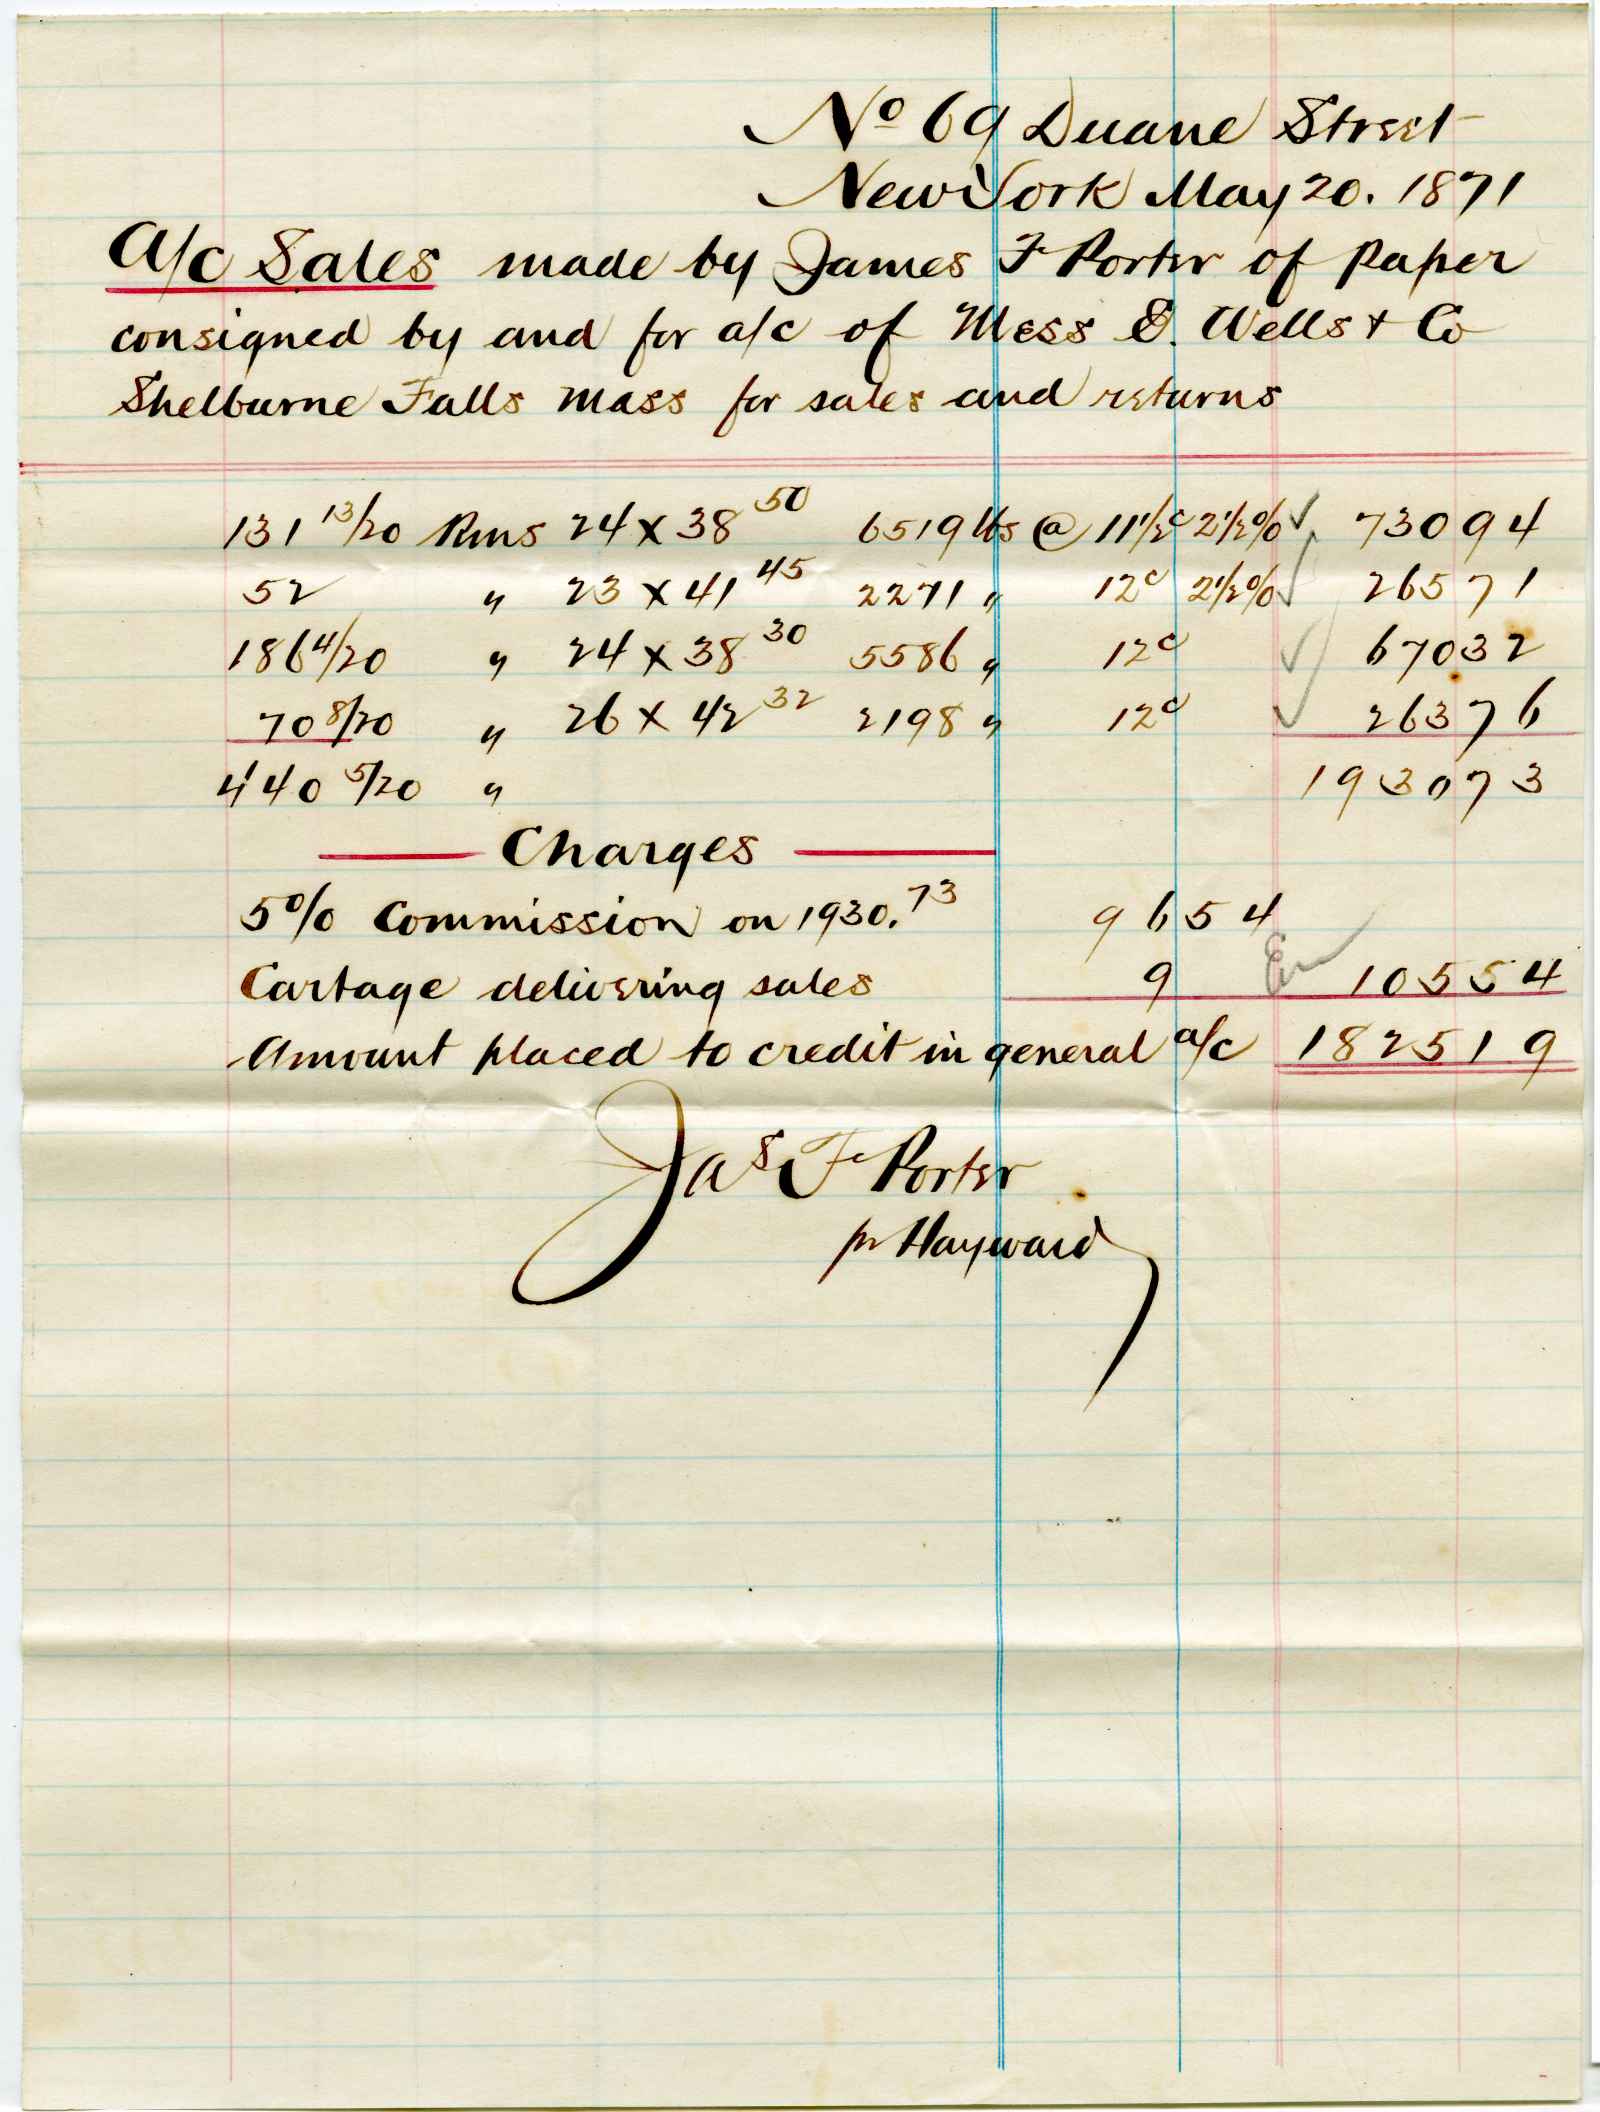 No 69 Duane Street
New York May 20. 1871
A/c Sales made by James F Porter of Paper
consigned by and for a/c of Mess E. Wells & Co
Shelburne Falls Mass for sales and returns
131 13/20 Rms 24 x 38 50 6519 lbs @ 11 1/2c 2 1/2% ✓ 730 94
52 " 23 x 41 45 2271 " 12c 2 1/2% ✓ 265 71
186 4/20 " 24 x 38 30 5586 " 12c ✓ 670 32
70 8/20 " 26 x 42 32 2198 " 12c ✓ 263 76
440 5/20 " 1930 73
Charges
5% Commission on 1930.73 96 54
Cartage delivering sales 9 105 54
Amount placed to credit in general a/c 1825 19
Jas F Porter
pr Hayward